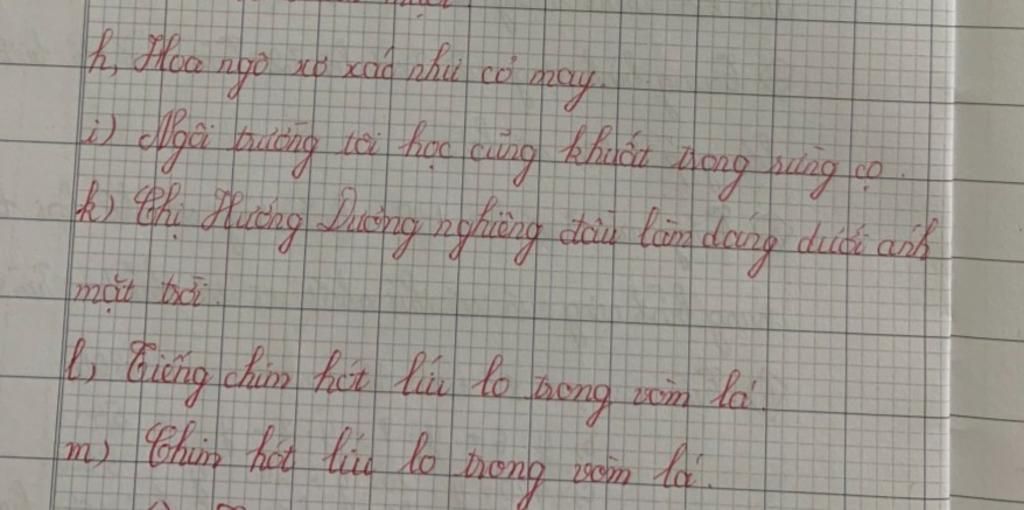 h, Hoa ngô xơ xác như cỏ may.
i) Ngôi trường tôi học cũng khuất trong rừng cọ.
k) Chị Hướng Dương nghiêng đầu làm dáng dưới ánh
mặt trời.
l, Tiếng chim hót líu lo trong vòm lá.
m) Chim hót líu lo trong vòm lá.